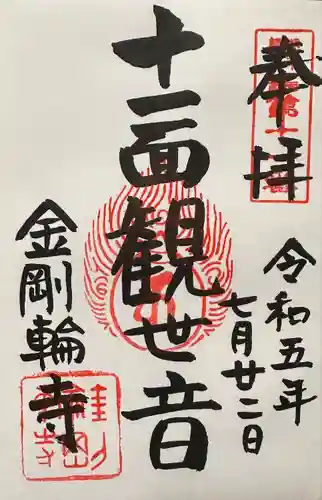 奉拝
令和五年
七月廿二日
十一面観世音
金剛輪寺